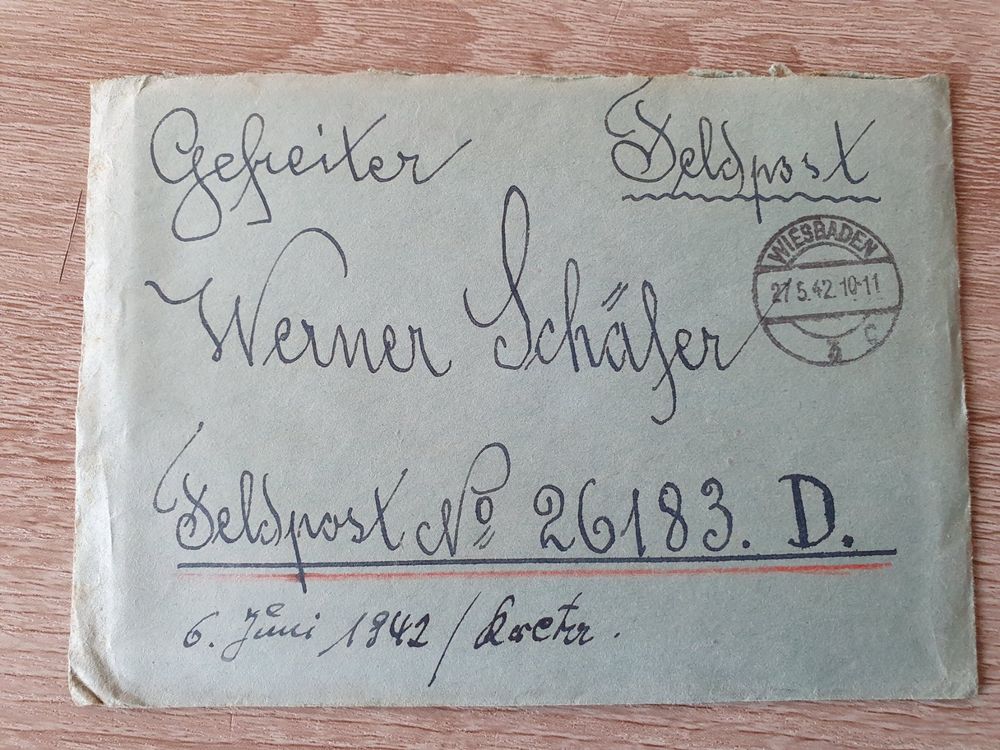 Gefreiter Feldpost
WIESBADEN
27.5.42.10-11
c
Werner Schäfer
Feldpost No 26183. D.
6. Juni 1942 /